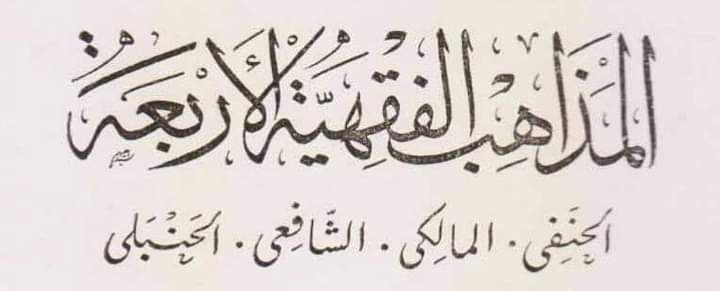 المَذَاهِبُ الفِقْهِيَّةُ الأَرْبَعَةُ
الحَنَفِى . المالِكِى . الشَّافِعِى . الحَنْبَلِى